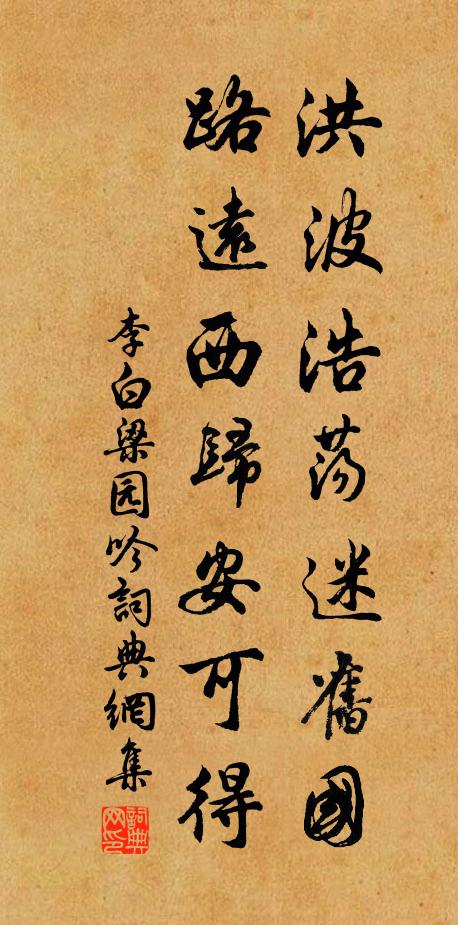 洪波浩荡迷舊國
路遠西歸安可得
李白梁园吟詞典網集
詞典
网印